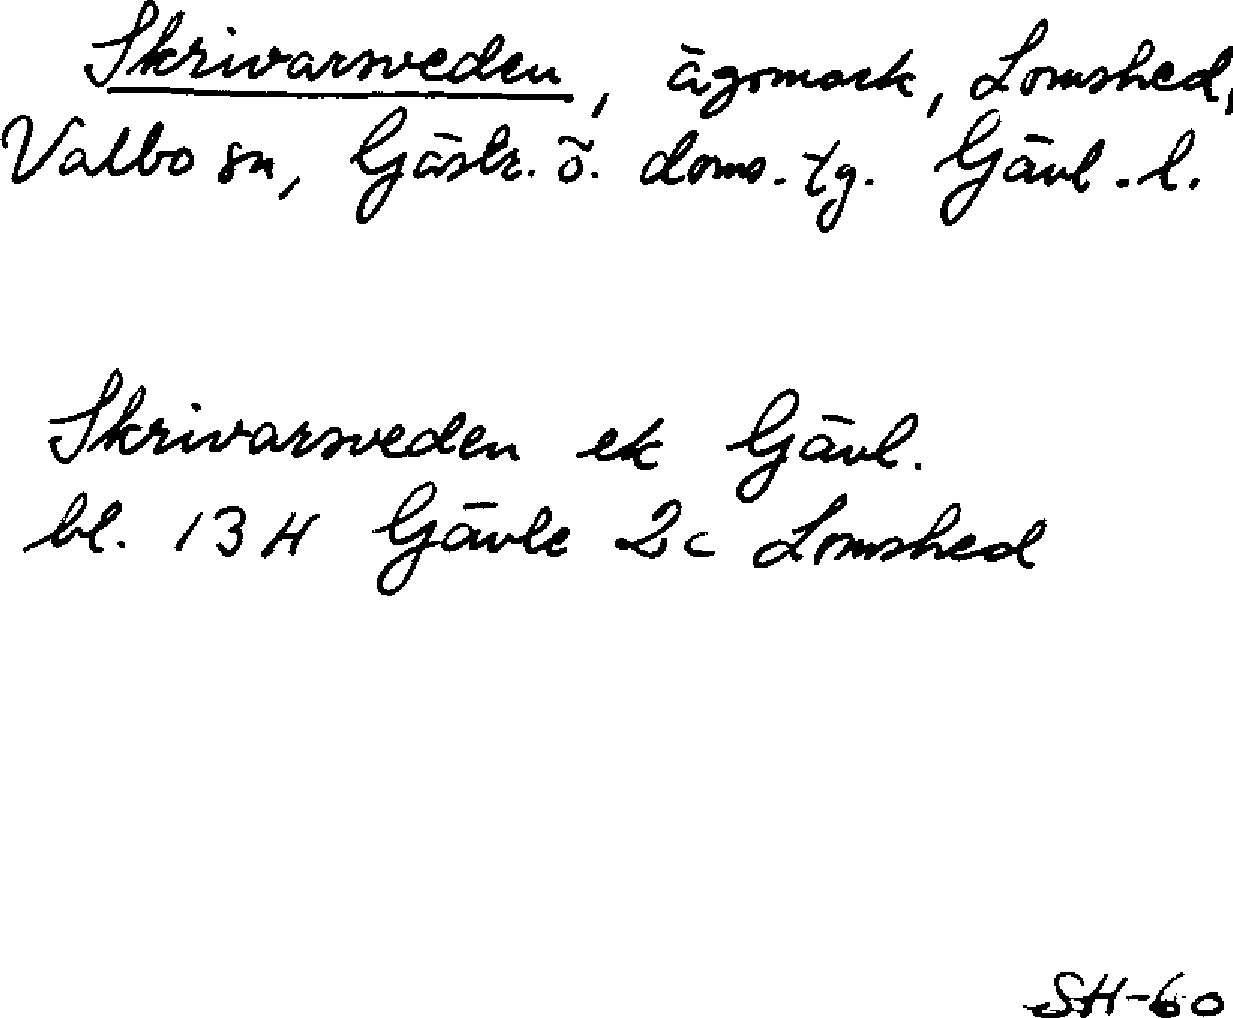 Skrivarsveden, ägomark, Lomshed,
Valbo sn, Gästr. ö. doms. tg. Gävl. l.
Skrivarsveden ek Gävl.
bl. 13 H Gävle 2c Lomshed
SH-60